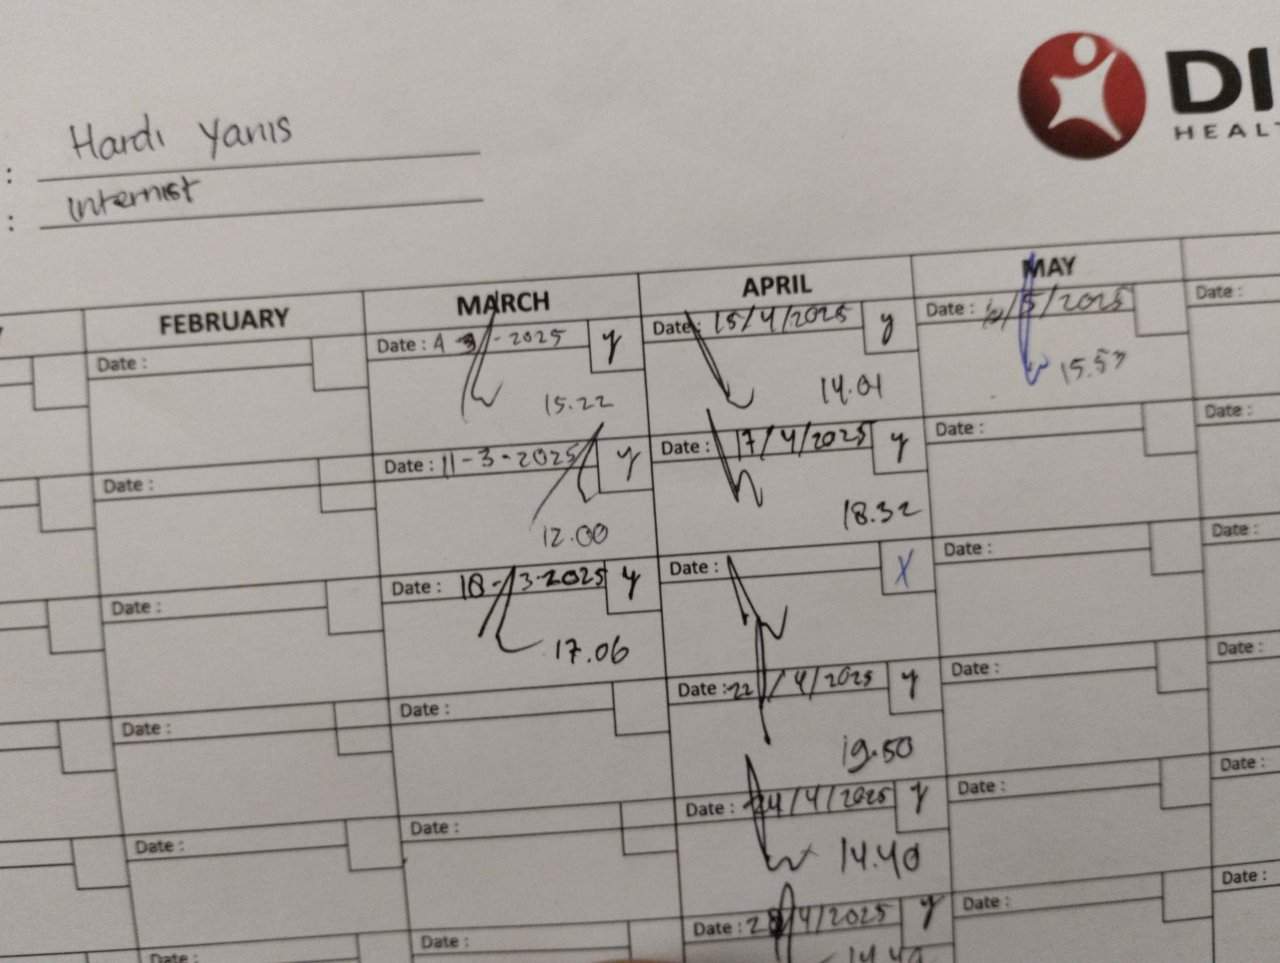 DI
HEAL
: Hardi Yanis
: Internist
FEBRUARY MARCH APRIL MAY
Date : Date : 4 3 - 2025 y Date : 15/4/2025 y Date : /5/2025 Date :
15.22 14.01 15.53
Date : Date : 11-3-2025 y Date : 17/4/2025 y Date : Date :
12.00 18.32
Date : Date : 18-3-2025 y Date : X Date : Date :
17.06
Date : Date : Date : 22/4/2025 y Date : Date :
19.50
Date : Date : Date : 24/4/2025 y Date : Date :
14.40
Date : Date : Date : 28/4/2025 y Date : Date :
14.49